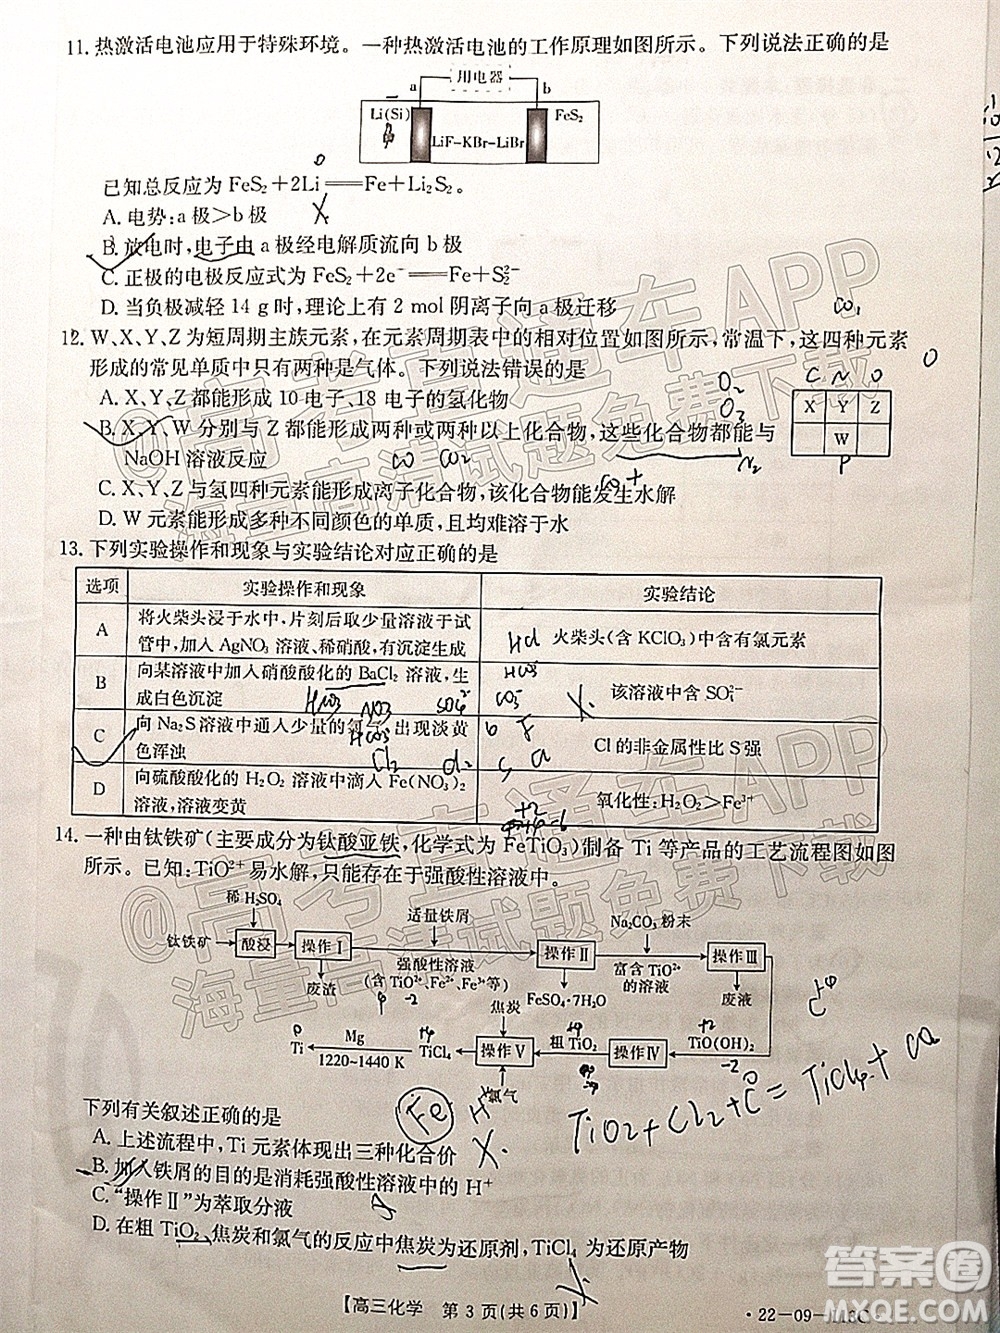 11. 热激活电池应用于特殊环境。一种热激活电池的工作原理如图所示。下列说法正确的是
用电器
a
b
Li(Si)
FeS₂
LiF-KBr-LiBr
已知总反应为 FeS₂+2Li══Fe+Li₂S₂。
A. 电势:a 极>b 极
B. 放电时,电子由 a 极经电解质流向 b 极
C. 正极的电极反应式为 FeS₂+2e⁻══Fe+S₂²⁻
D. 当负极减轻 14 g 时,理论上有 2 mol 阴离子向 a 极迁移
12. W、X、Y、Z 为短周期主族元素,在元素周期表中的相对位置如图所示,常温下,这四种元素
形成的常见单质中只有两种是气体。下列说法错误的是
C N O
X Y Z
W
P
A. X、Y、Z 都能形成 10 电子、18 电子的氢化物
O₂
O₃
B. X、Y、W 分别与 Z 都能形成两种或两种以上化合物,这些化合物都能与
NaOH 溶液反应
CO CO₂
C. X、Y、Z 与氢四种元素能形成离子化合物,该化合物能发生水解
D. W 元素能形成多种不同颜色的单质,且均难溶于水
13. 下列实验操作和现象与实验结论对应正确的是
选项 实验操作和现象 实验结论
A 将火柴头浸于水中,片刻后取少量溶液于试
管中,加入 AgNO₃ 溶液、稀硝酸,有沉淀生成 火柴头(含 KClO₃)中含有氯元素
B 向某溶液中加入硝酸酸化的 BaCl₂ 溶液,生
成白色沉淀 该溶液中含 SO₄²⁻
C 向 Na₂S 溶液中通入少量的氯气,出现淡黄
色浑浊 Cl 的非金属性比 S 强
D 向硫酸酸化的 H₂O₂ 溶液中滴入 Fe(NO₃)₂
溶液,溶液变黄 氧化性:H₂O₂>Fe³⁺
14. 一种由钛铁矿(主要成分为钛酸亚铁,化学式为 FeTiO₃)制备 Ti 等产品的工艺流程图如图
所示。已知:TiO²⁺ 易水解,只能存在于强酸性溶液中。
稀 H₂SO₄
适量铁屑
Na₂CO₃ 粉末
钛铁矿
酸浸
操作Ⅰ
强酸性溶液
(含 TiO²⁺、Fe²⁺、Fe³⁺等)
操作Ⅱ
富含 TiO²⁺
的溶液
操作Ⅲ
废渣
FeSO₄·7H₂O
废液
焦炭
Ti
Mg
1220~1440 K
TiCl₄
操作Ⅴ
粗 TiO₂
操作Ⅳ
TiO(OH)₂
氯气
下列有关叙述正确的是
Fe
TiO₂+Cl₂+C=TiCl₄+CO
A. 上述流程中,Ti 元素体现出三种化合价
B. 加入铁屑的目的是消耗强酸性溶液中的 H⁺
C. “操作Ⅱ”为萃取分液
D. 在粗 TiO₂、焦炭和氯气的反应中焦炭为还原剂,TiCl₄ 为还原产物
【高三化学 第 3 页(共 6 页)】
·22-09-J113C·
@高考直通车APP
海量高清试题免费下载
@高考直通车APP
海量高清试题免费下载
答案圈
MXQE.COM